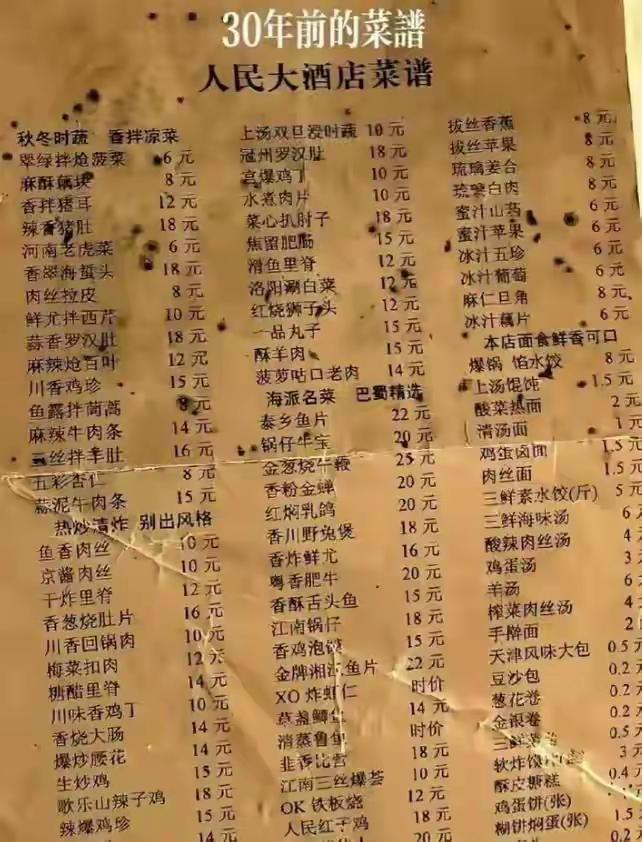 30年前的菜譜
人民大酒店菜谱
秋冬时蔬 香拌凉菜
翠绿拌炝菠菜 6元
麻酥藕块 8元
香拌猪耳 12元
辣香猪肚 18元
河南老虎菜 6元
香翠海蜇头 18元
肉丝拉皮 8元
鲜尤拌西芹 10元
蒜香罗汉肚 18元
麻辣炝百叶 12元
川香鸡珍 15元
鱼露拌茼蒿 8元
麻辣牛肉条 14元
三丝拌羊肚 16元
五彩杏仁 8元
蒜泥牛肉条 15元
热炒清炸 别出风格
鱼香肉丝 10元
京酱肉丝 10元
干炸里脊 12元
香葱烧肚片 16元
川香回锅肉 10元
梅菜扣肉 12元
糖醋里脊 14元
川味香鸡丁 10元
香烧大肠 14元
爆炒腰花 14元
生炒鸡 15元
歌乐山辣子鸡 18元
辣爆鸡珍 15元
14元
上汤双旦浸时蔬 10元
冠州罗汉肚 18元
宫爆鸡丁 10元
水煮肉片 10元
菜心扒肘子 18元
焦留肥肠 15元
滑鱼里脊 12元
洛阳涮白菜 12元
红烧狮子头 12元
一品丸子 15元
酥羊肉 15元
菠萝咕口老肉 14元
海派名菜 巴蜀精选
泰乡鱼片 22元
锅仔牛宝 20元
金葱烧牛鞭 25元
香粉金蝉 20元
红焖乳鸽 20元
香川野兔煲 18元
香炸鲜尤 16元
粤香肥牛 20元
香酥舌头鱼 15元
江南锅仔 18元
香鸡泡馍 15元
金牌湘江鱼片 22元
XO炸虾仁 时价
14元
清蒸鲁鱼 时价
韭香 18元
江南三丝爆荟 10元
OK铁板烧 12元
人民红子鸡 18元
20元
拔丝香蕉 8元
拔丝苹果 8元
琉璃姜合 8元
琉璃白肉 8元
蜜汁山药 6元
蜜汁苹果 6元
冰汁五珍 6元
冰汁葡萄 6元
麻仁旦角 8元
冰汁藕片 6元
本店面食鲜香可口
爆锅 馅水饺 8元
上汤馄饨 1.5元
酸菜热面 2元
清汤面 1元
鸡蛋卤面 1.5元
肉丝面 1.5元
三鲜素水饺(斤) 5元
三鲜海味汤 6
酸辣肉丝汤 4
鸡蛋汤 3
羊汤 6
榨菜肉丝汤 4
手擀面 2
天津风味大包 0.5元
豆沙包 0.2
葱花卷 0.2
金银卷 0.5
三鲜 3元
软炸馍 0.4
酥皮糖糕
鸡蛋饼(张) 1.5
糊饼焖蛋(张) 0.2